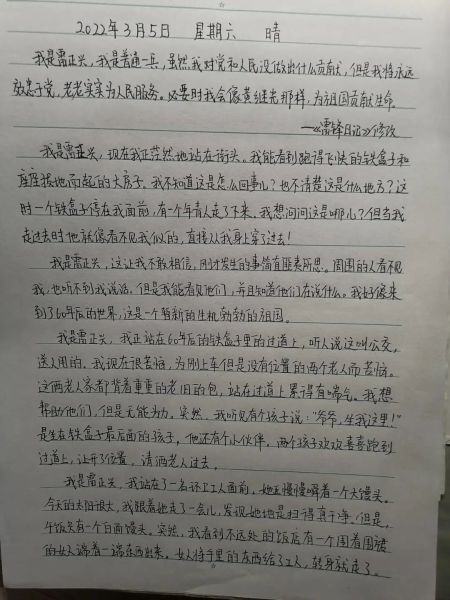 2022年3月5日 星期六 晴
我是雷正兴,我是普通一兵,虽然我对党和人民没做出什么贡献,但是我将永远
效忠于党,老老实实为人民服务。必要时我会像黄继光那样,为祖国贡献生命
——《雷锋日记》修改
我是雷正兴,现在我正茫然地站在街头。我能看到跑得飞快的铁盒子和
座座拔地而起的大房子。我不知道这是怎么回事儿?也不清楚这是什么地方?这
时一个铁盒子停在我面前,有一个年青人走了下来,我想问问这是哪儿?但当我
走过去时他就像看不见我似的,直接从我身上穿了过去!
我是雷正兴,这让我不敢相信,刚才发生的事简直匪夷所思。周围的人看不见
我,也听不到我说话,但是我能看见他们,并且知道他们在说什么。我好像来
到了60年后的世界,这是一个崭新的生机勃勃的祖国。
我是雷正兴,我正站在60年后的铁盒子里的过道上,听人说这叫公交,
送人用的。我现在很苦恼,为刚上车但是没有位置的两个老人而苦恼。
这两老人家都背着重重的老旧的包,站在过道上累得直喘气。我想
帮助他们,但是无能为力,突然,我听见有个孩子说:"爷爷,坐我这里!"
是坐在铁盒子最后面的孩子,他还有个小伙伴,两个孩子欢欢喜喜跑到
过道上,让开了位置,请俩老人过去。
我是雷正兴,我站在了一名环卫工人面前,她正慢慢嚼着一个大馒头。
今天的太阳很大,我跟着她走了一会儿,发现她地是扫得真干净,但是,
午饭只有一个白面馒头。突然,我看到不远处的饭店有一个围着围裙
的女人端着一碗东西出来。女人将手里的东西给了工人,转身就走了。